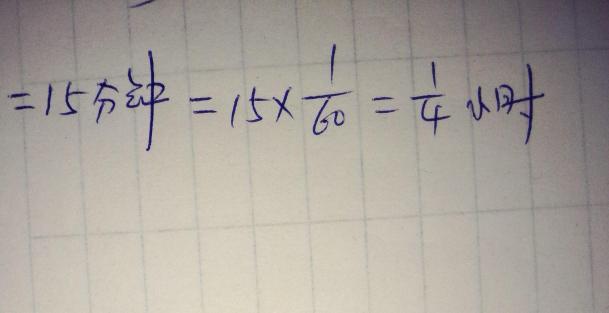 =15分钟=15×1/60=1/4小时